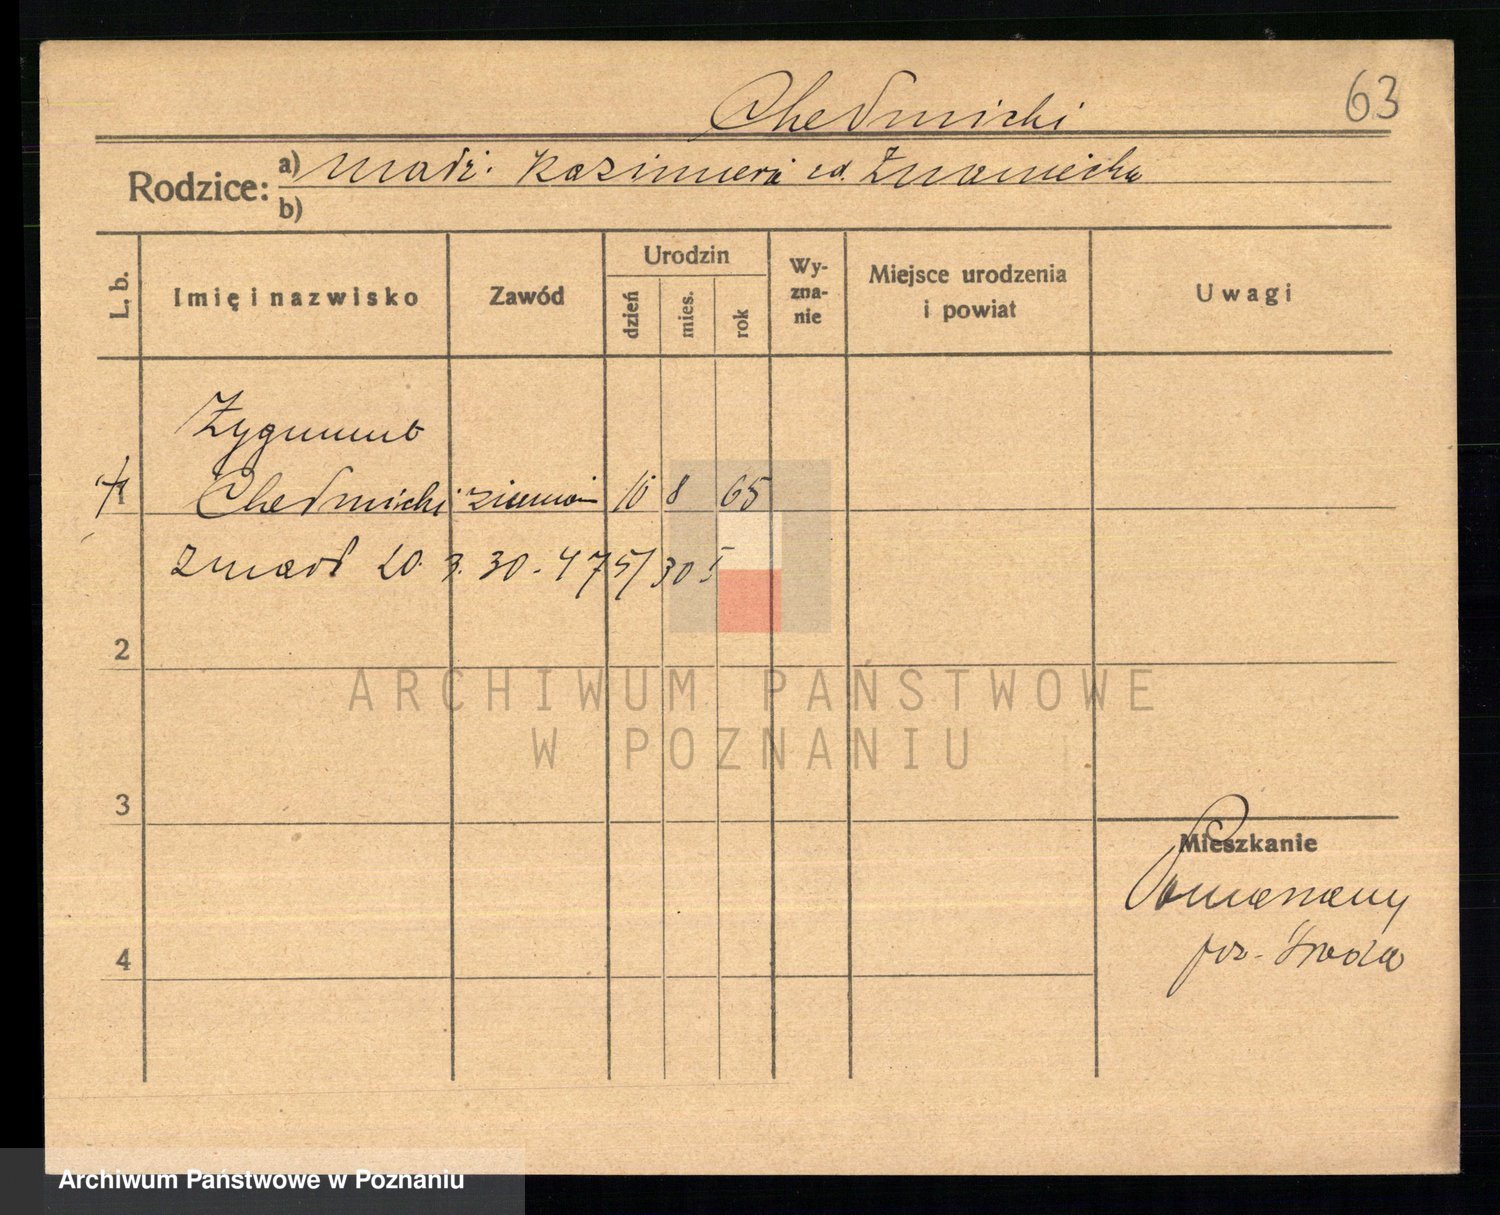 63
Chełmicki
Rodzice: a) małż. Kazimiera ur. Znaniecka
b)
L. b.
Imię i nazwisko
Zawód
Urodzin
dzień
mies.
rok
Wy-
zna-
nie
Miejsce urodzenia
i powiat
Uwagi
Zygmunt
1 Chełmicki ziemian 10 8 65
zmarł 20. 3. 30 - 475/30
2
3
4
ARCHIWUM PAŃSTWOWE
W POZNANIU
Mieszkanie
pow. Środa
Archiwum Państwowe w Poznaniu